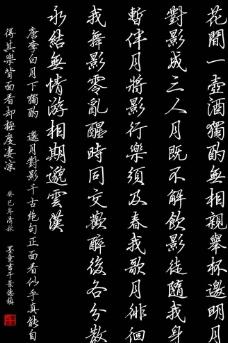 花間一壺酒獨酌無相親舉杯邀明月
對影成三人月既不解飲影徒隨我身
暫伴月將影行樂須及春我歌月徘徊
我舞影零亂醒時同交歡醉後各分散
永結無情游相期邈雲漢
唐李白月下獨酌 邀月對影千古絕句正面看似乎真能自
得其樂背面看卻極度凄涼
癸巳年清秋